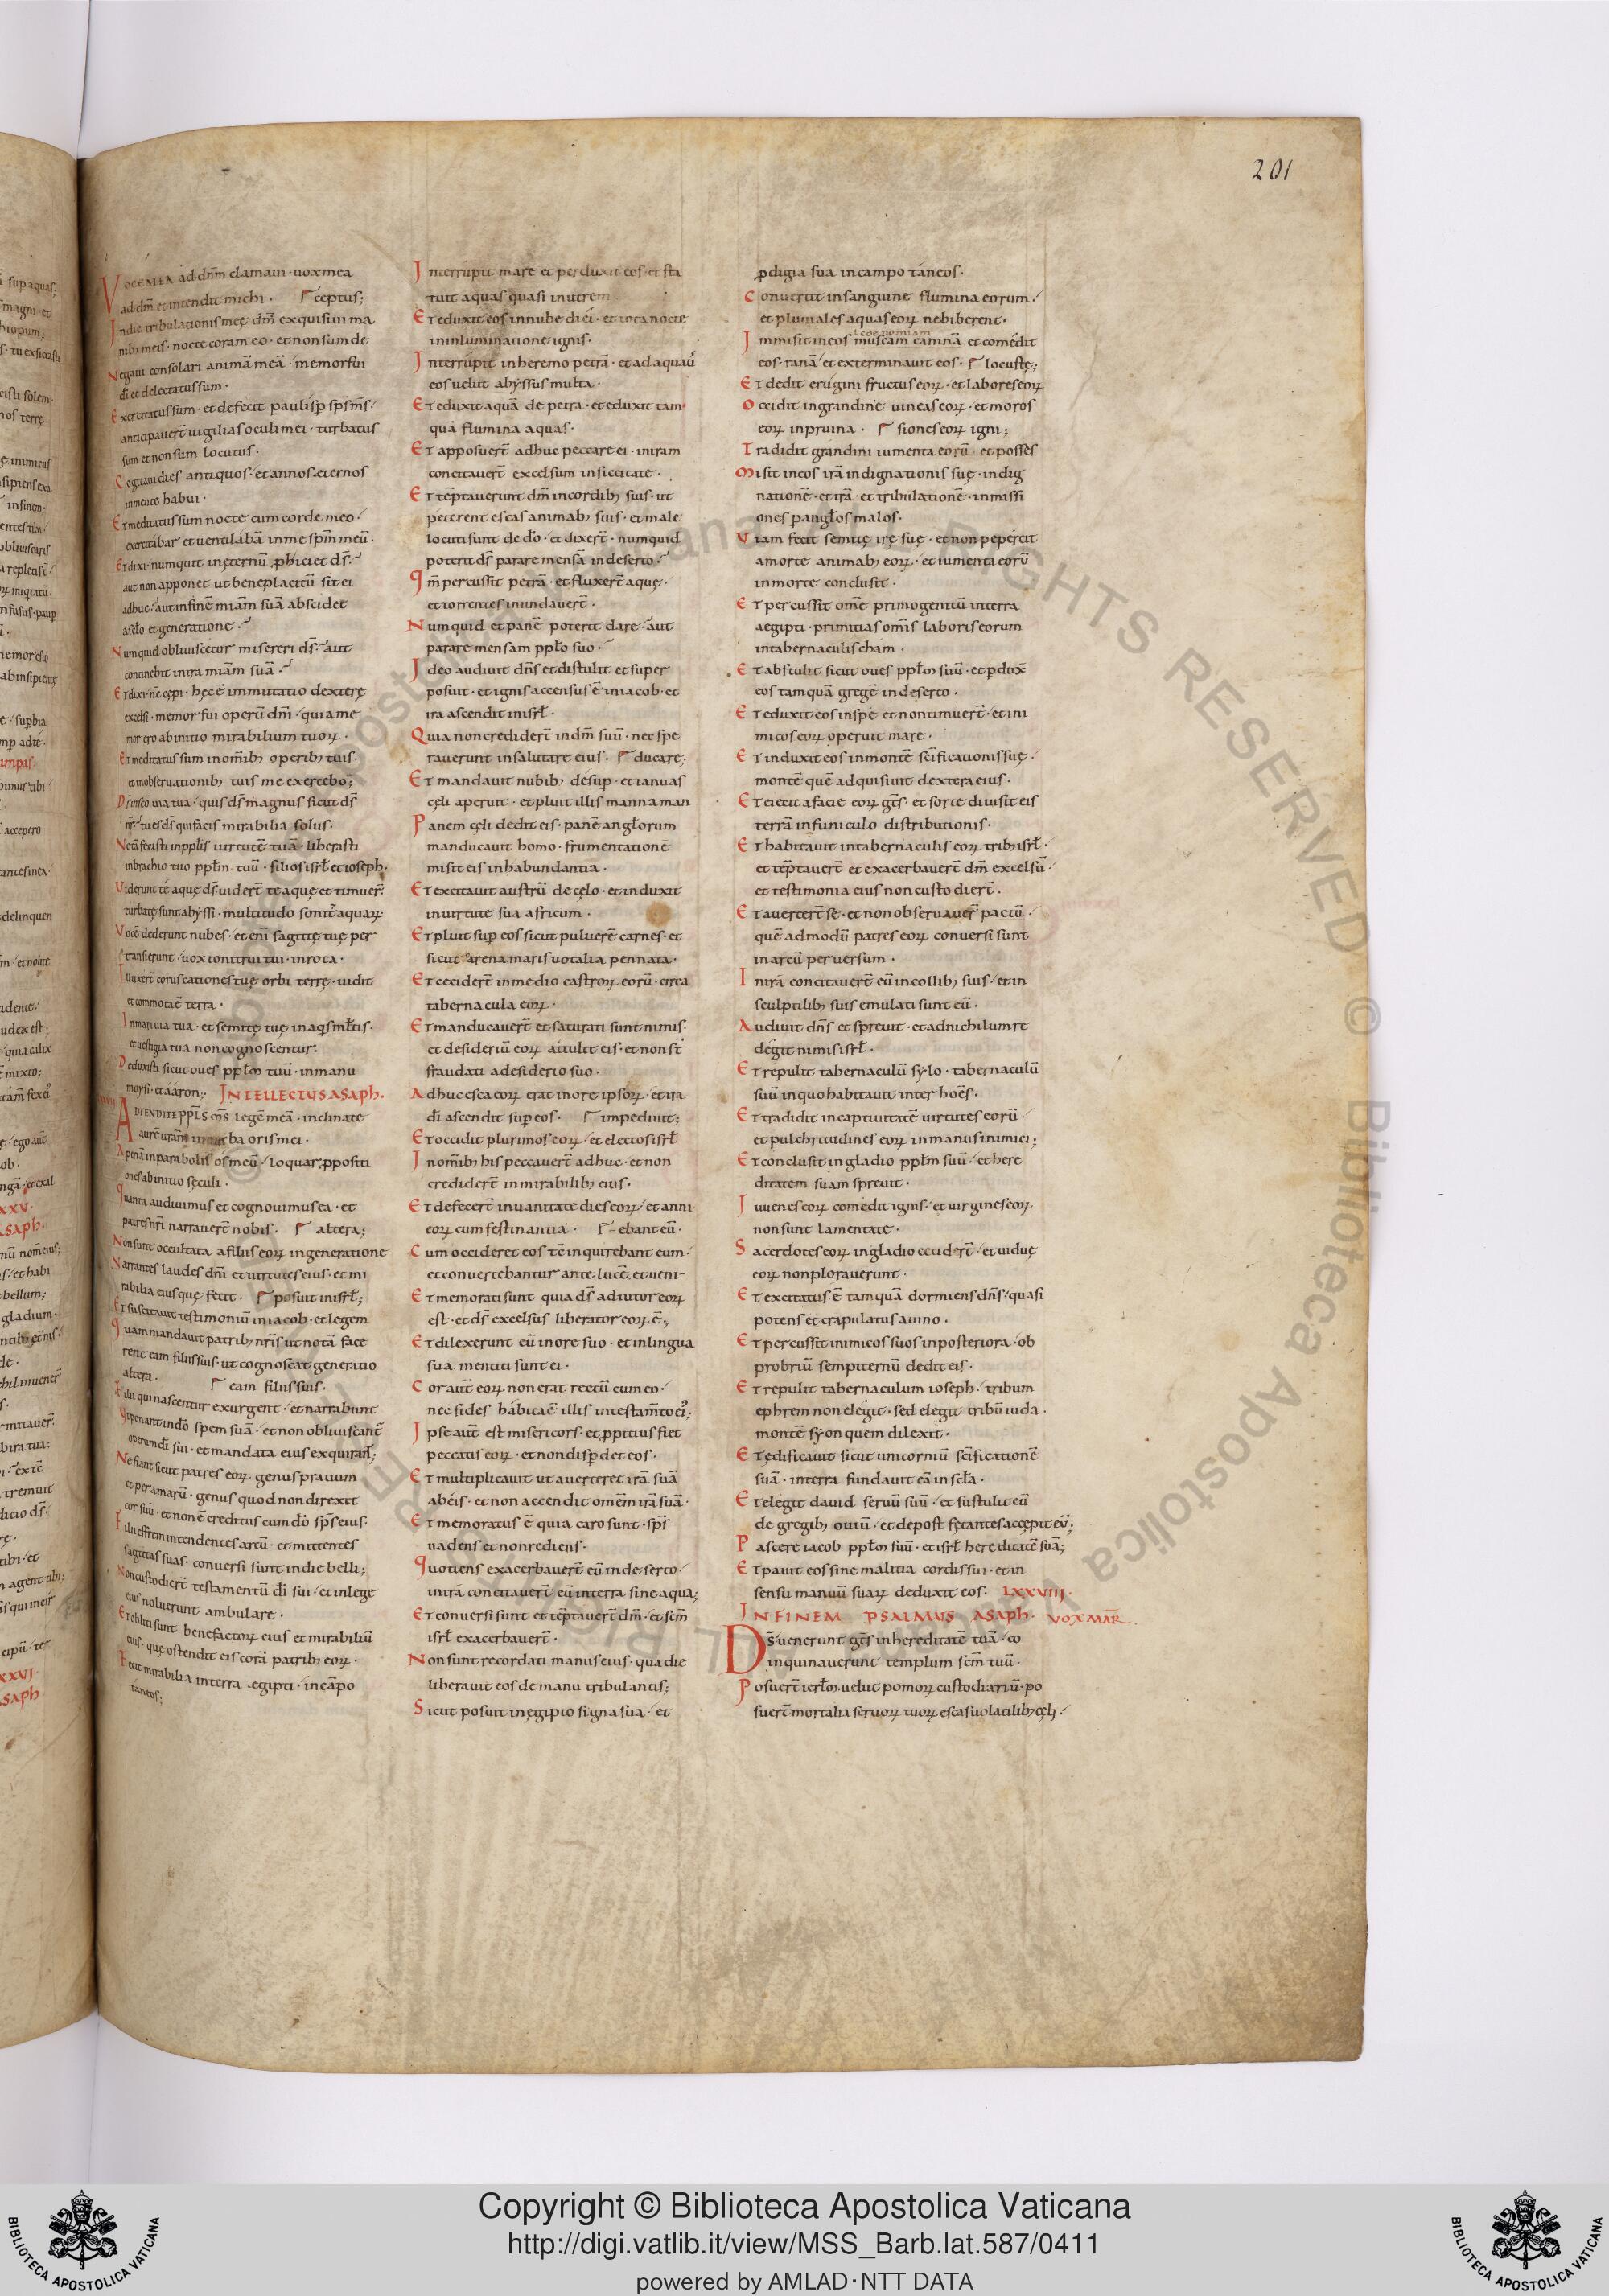 201
VOCEMEA ad dn̄m clamaui · uox mea
ad dm̄ et intendit michi · ceptus;
In die tribulationis męę dm̄ exquisiui ma
nib; meis · nocte coram eo · et non sum de
Negaui consolari animā meā · memor fui
dī et delectatus sum ·
Exercitatus sum · et defecit paulisp sp̄s m̄s ·
anticipauer̄t uigilias oculi mei · turbatus
sum et non sum locutus ·
Cogitaui dies antiquos · et annos ęternos
in mente habui ·
Et meditatus sum nocte cum corde meo ·
exercitabar et uentilabā in me sp̄m meū ·
Et dixi · numquit in ęternū ꝓhiciet ds̄ ·
aut non apponet ut beneplacitū sit ei
adhuc · aut in finē miam̄ suā abscidet
a sc̄lo et generatione ·
Numquid obliuiscetur misereri ds̄ · aut
continebit in ira miam̄ suā ·
Et dixi · nc̄ cępi · hęc ē immutatio dexterę
excelsi · memor fui operū dn̄i · quia me
mor ero ab initio mirabilium tuoꝝ ·
Et meditatus sum in om̄ib; operib; tuis ·
et in obseruationib; tuis me exercebor;
Ds̄ in sc̄o uia tua · quis ds̄ magnus sicut ds̄
nr̄ · tu es ds̄ qui facis mirabilia solus ·
Notā fecisti in pp̄lis uirtutē tuā · liberasti
in brachio tuo ppl̄m tuū · filios isrl̄ et ioseph ·
Viderunt te aquę ds̄ · uider̄t te aquę et timuer̄ ·
turbatę sunt abyssi · multitudo sonit̄ aquaꝝ ·
Vocē dederunt nubes · et eni̅ sagittę tuę per
transierunt · uox tonitrui tui · in rota ·
Iluxer̄t coruscationes tuę orbi terrę · uidit
et commota ē terra ·
In mari uia tua · et semitę tuę in aqs ml̄tis ·
et uestigia tua non cognoscentur ·
Deduxisti sicut oues ppl̄m tuū · in manu
moysi · et aaron; INTELLECTUS ASAPH ·
ADTENDITE PPL̄S m̄s legē meā · inclinate
aurē uram̄ in uerba oris mei ·
Aperiā in parabolis os meū · loquar ꝓpositi
ones ab initio sęculi ·
Quanta audiuimus et cognouimus ea · et
patres nr̄i narrauer̄t nobis · altera;
Non sunt occultata a filiis eoꝝ in generatione
Narrantes laudes dn̄i et uirtutes eius · et mi
rabilia eius quę fecit · posuit in isrl̄;
Et suscitauit testimoniū in iacob · et legem
Quam mandauit patrib; nr̄is ut notā face
rent eam filiis suis · ut cognoscat generatio
altera · eam filiis suis ·
Filii qui nascentur exurgent · et narrabunt
Vt ponant in dō spem suā · et non obliuiscant̄
operum dī sui · et mandata eius exquirant̄;
Ne fiant sicut patres eoꝝ genus prauum
et peramarū · genus quod non direxit
cor suū · et non ē creditus cum dō sp̄s eius ·
Filii effrem intendentes arcū · et mittentes
sagittas suas · conuersi sunt in die belli;
Non custodier̄t testamentū dī sui · et in lege
eius noluerunt ambulare ·
Et obliti sunt benefactoꝝ eius et mirabiliū
eius · quę ostendit eis corā patrib; eoꝝ ·
Fecit mirabilia in terra ęgipti · in cāpo
taneos;
Interrupit mare et perduxit eos · et sta
tuit aquas quasi in utrem
Et eduxit eos in nube diei · et tota nocte
in inluminatione ignis ·
Interrupit in heremo petrā · et adaquaū
eos uelut abyssus multa ·
Et eduxit aquā de petra · et eduxit tam
quā flumina aquas ·
Et apposuer̄t adhuc peccare ei · in iram
concitauer̄t excelsum in siccitate ·
Et tēptauerunt dm̄ in cordib; suis · ut
peterent escas animab; suis · et male
locuti sunt de dō · et dixer̄t · numquid
poterit ds̄ parare mensā in deserto ·
Qm̄ percussit petrā · et fluxer̄t aquę ·
et torrentes inundauer̄t ·
Numquid et panē poterit dare · aut
parare mensam ppl̄o suo ·
Ideo audiuit dn̄s et distulit et super
posuit · et ignis accensus ē in iacob · et
ira ascendit in isrl̄ ·
Quia non credidert̄ in dm̄ suū · nec spe
rauerunt in salutare eius · ducare;
Et mandauit nubib; desup · et ianuas
cęli aperuit · et pluit illis manna man
Panem cęli dedit eis · panē angl̄orum
manducauit homo · frumentationē
misit eis in habundantia ·
Et excitauit austrū de cęlo · et induxit
in uirtute sua africum ·
Et pluit sup eos sicut puluerē carnes · et
sicut arena maris uotalia pennata ·
Et ceciderт̄ in medio castroꝝ eorū · circa
tabernacula eoꝝ ·
Et manducauer̄t et saturati sunt nimis ·
et desideriū eoꝝ attulit eis · et non st̄
fraudati a desiderio suo ·
Adhuc esca eoꝝ erat in ore ipsoꝝ · et ira
dī ascendit sup eos · impediuit;
Et occidit plurimos eoꝝ · et electos isrl̄
In om̄ib; his peccauer̄t adhuc · et non
crediderт̄ in mirabilib; eius ·
Et defecer̄t in uanitate dies eoꝝ · et anni
eoꝝ cum festinantia · ebant eū ·
Cum occideret eos · tē inquirebant eum ·
et conuertebantur ante lucē · et ueni-
Et memorati sunt quia ds̄ adiutor eoꝝ
est · et ds̄ excelsus liberator eoꝝ ē;
Et dilexerunt eū in ore suo · et in lingua
sua mentiti sunt ei ·
Cor aut̄ eoꝝ non erat rectū cum eo ·
nec fides habita ē illis in testam̄to ei;
Ipse aut̄ est misericors · et ꝓpitius fiet
peccatis eoꝝ · et non disꝑdet eos ·
Et multiplicauit ut auerteret irā suā
ab eis · et non accendit omēm irā suā ·
Et memoratus ē quia caro sunt · sp̄s
uadens et non rediens ·
Quotiens exacerbauer̄t eū in deserto ·
in irā concitauer̄t eū in terra sine aqua;
Et conuersi sunt et tēptauer̄t dm̄ · et sc̄m
isrl̄ exacerbauer̄t ·
Non sunt recordati manus eius · qua die
liberauit eos de manu tribulantis;
Sicut posuit in ęgipto signa sua · et
ꝓdigia sua in campo taneos ·
Conuertit in sanguine flumina eorum ·
et pluuiales aquas eoꝝ ne biberent ·
Immisit in eos muscam caninā et comedit
eos · ranā et exterminauit eos · locustę;
Et dedit erugini fructus eoꝝ · et labores eoꝝ
Occidit in grandine uineas eoꝝ · et moros
eoꝝ in pruina · siones eoꝝ igni;
Tradidit grandini iumenta eorū · et posses
Misit in eos irā indignationis suę · indig
nationē · et irā · et tribulationē · inmissi
ones ꝑ angl̄os malos ·
Viam fecit semitę irę suę · et non pepercit
a morte animab; eoꝝ · et iumenta eorū
in morte conclusit ·
Et percussit omē primogenitū in terra
aegipti · primitias om̄is laboris eorum
in tabernaculis cham ·
Et abstulit sicut oues ppl̄m suū · et ꝑdux̄
eos tamquā gregē in deserto ·
Et eduxit eos in spe et non timuer̄t · et ini
micos eoꝝ operuit mare ·
Et induxit eos in montē sc̄ificationis suę ·
montē quē adquisiuit dextera eius ·
Et eiecit a facie eoꝝ gt̄s · et sorte diuisit eis
terrā in funiculo distributionis ·
Et habitauit in tabernaculis eoꝝ trib; isrl̄ ·
et tēptauer̄t et exacerbauer̄t dm̄ excelsū ·
et testimonia eius non custodier̄t ·
Et auerter̄t se · et non obseruauer̄ pactū ·
quē admodū patres eoꝝ conuersi sunt
in arcū peruersum ·
In irā concitauer̄t eū in collib; suis · et in
sculptilib; suis emulati sunt eū ·
Audiuit dn̄s et spreuit · et ad nichilum re
degit nimis isrl̄ ·
Et repulit tabernaculū sylo · tabernaculū
suū in quo habitauit inter hoēs ·
Et tradidit in captiuitatē uirtutes eorū ·
et pulchritudines eoꝝ in manus inimici;
Et conclusit in gladio ppl̄m suū · et here
ditatem suam spreuit ·
Iuuenes eoꝝ comedit ignis · et uirgines eoꝝ
non sunt lamentate ·
Sacerdotes eoꝝ in gladio cecider̄t · et uiduę
eoꝝ non plorauerunt ·
Et excitatus ē tamquā dormiens dn̄s · quasi
potens et crapulatus a uino ·
Et percussit inimicos suos in posteriora · ob
probriū sempiternū dedit eis ·
Et repulit tabernaculum ioseph · tribum
ephrem non elegit · sed elegit tribū iuda ·
montē syon quem dilexit ·
Et ędificauit sicut unicorniū sc̄ificationē
suā · in terra fundauit eā in sc̄la ·
Et elegit dauid seruū suū · et sustulit eū
de gregib; ouiū · et de post fętantes accepit eū;
Pascere iacob ppl̄m suū · et isrl̄ hereditatē suā;
Et pauit eos sine malitia cordis sui · et in
sensu manuū suaꝝ deduxit eos · LXXVIII ·
IN FINEM PSALMUS ASAPH · VOX MAR̄ ·
Ds̄ uenerunt gt̄s in hereditatē tuā · co
inquinauerunt templum sc̄m tuū ·
Posuer̄t ierl̄m uelut pomoꝝ custodiariū · po
suer̄t mortalia seruoꝝ tuoꝝ escas uolatilib; cęli ·
© Biblioteca Apostolica Vaticana ALL RIGHTS RESERVED
Copyright © Biblioteca Apostolica Vaticana
http://digi.vatlib.it/view/MSS_Barb.lat.587/0411
powered by AMLAD·NTT DATA
BIBLIOTECA APOSTOLICA VATICANA
BIBLIOTECA APOSTOLICA VATICANA